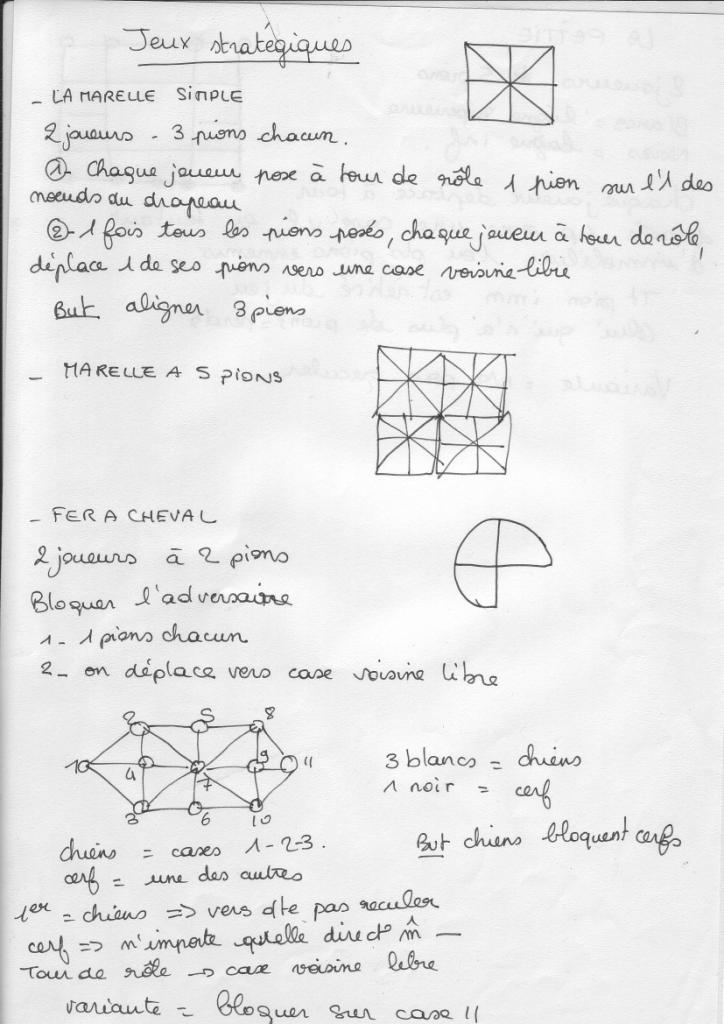 Jeux stratégiques
- LA MARELLE SIMPLE
2 joueurs - 3 pions chacun.
① - Chaque joueur pose à tour de rôle 1 pion sur l'1 des
noeuds du drapeau
② - 1 fois tous les pions posés, chaque joueur à tour de rôle
déplace 1 de ses pions vers une case voisine libre
But aligner 3 pions
- MARELLE A 5 PIONS
- FER A CHEVAL
2 joueurs à 2 pions
Bloquer l'adversaire
1 - 1 pions chacun
2 - on déplace vers case voisine libre
2 5 8
1 4 7 9 11
3 6 10
3 blancs = chiens
1 noir = cerf
But chiens bloquent cerfs
chiens = cases 1-2-3.
cerf = une des autres
1er = chiens => vers dte pas reculer
cerf => n'importe quelle direct° m̂ —
Tour de rôle -> case voisine libre
variante = bloquer sur case 11